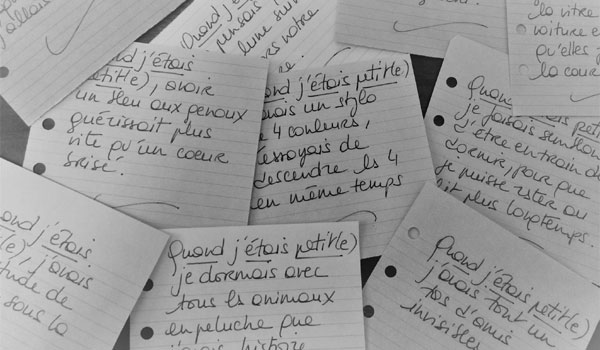 j'allais
Quand j'étais
pensais
lune suiv
notre
la vitre
voiture en
qu'elles
la cour
j'étais
petit(e), avoir
un bleu aux genoux
guérissait plus
vite qu'un coeur
brisé.
j'étais petit(e)
un stylo
4 couleurs,
descendre les 4
en même temps
Quand j'étais
je faisais semblan
d'être en train de
dormir, pour que
je puisse rester au
plus longtemps.
j'étais
j'avais
de
sous la
Quand j'étais petit(e)
je dormais avec
tous les animaux
en peluche que
j'avais, histoire
Quand j'étais petit(e)
j'avais tout un
tas d'amis
invisibles